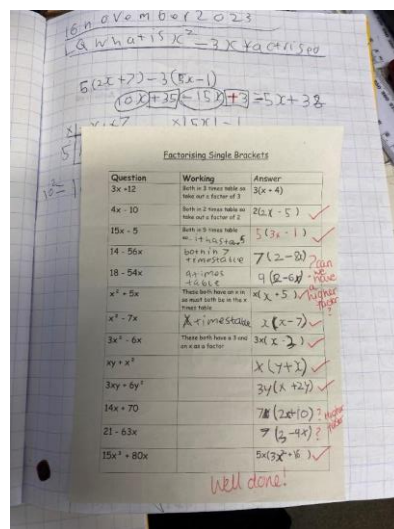 16 november 2023
Q what is x² - 3x factorised
5(2x+7) - 3(5x-1)
10x+35 -15x +3 = -5x+38
Factorising Single Brackets
Question Working Answer
3x +12 Both in 3 times table so take out a factor of 3 3(x + 4)
4x - 10 Both in 2 times table so take out a factor of 2 2(2x - 5)
15x - 5 Both in 5 times table 5(3x - 1)
14 - 56x both in 7 timestable 7(2-8x)
18 - 54x 9 times table 9( -6x)
can we have a higher factor?
x² + 5x These both have an x in so must both be in the x times table x(x + 5)
x² - 7x x timestable x(x-7)
3x² - 6x These both have a 3 and an x as a factor 3x(x - 2)
xy + x² x(y+x)
3xy + 6y² 3y(x +2y)
14x + 70 7(2x+10) ? Higher factor
21 - 63x ?
15x³ + 80x 5x(3x²+16)
Well done!